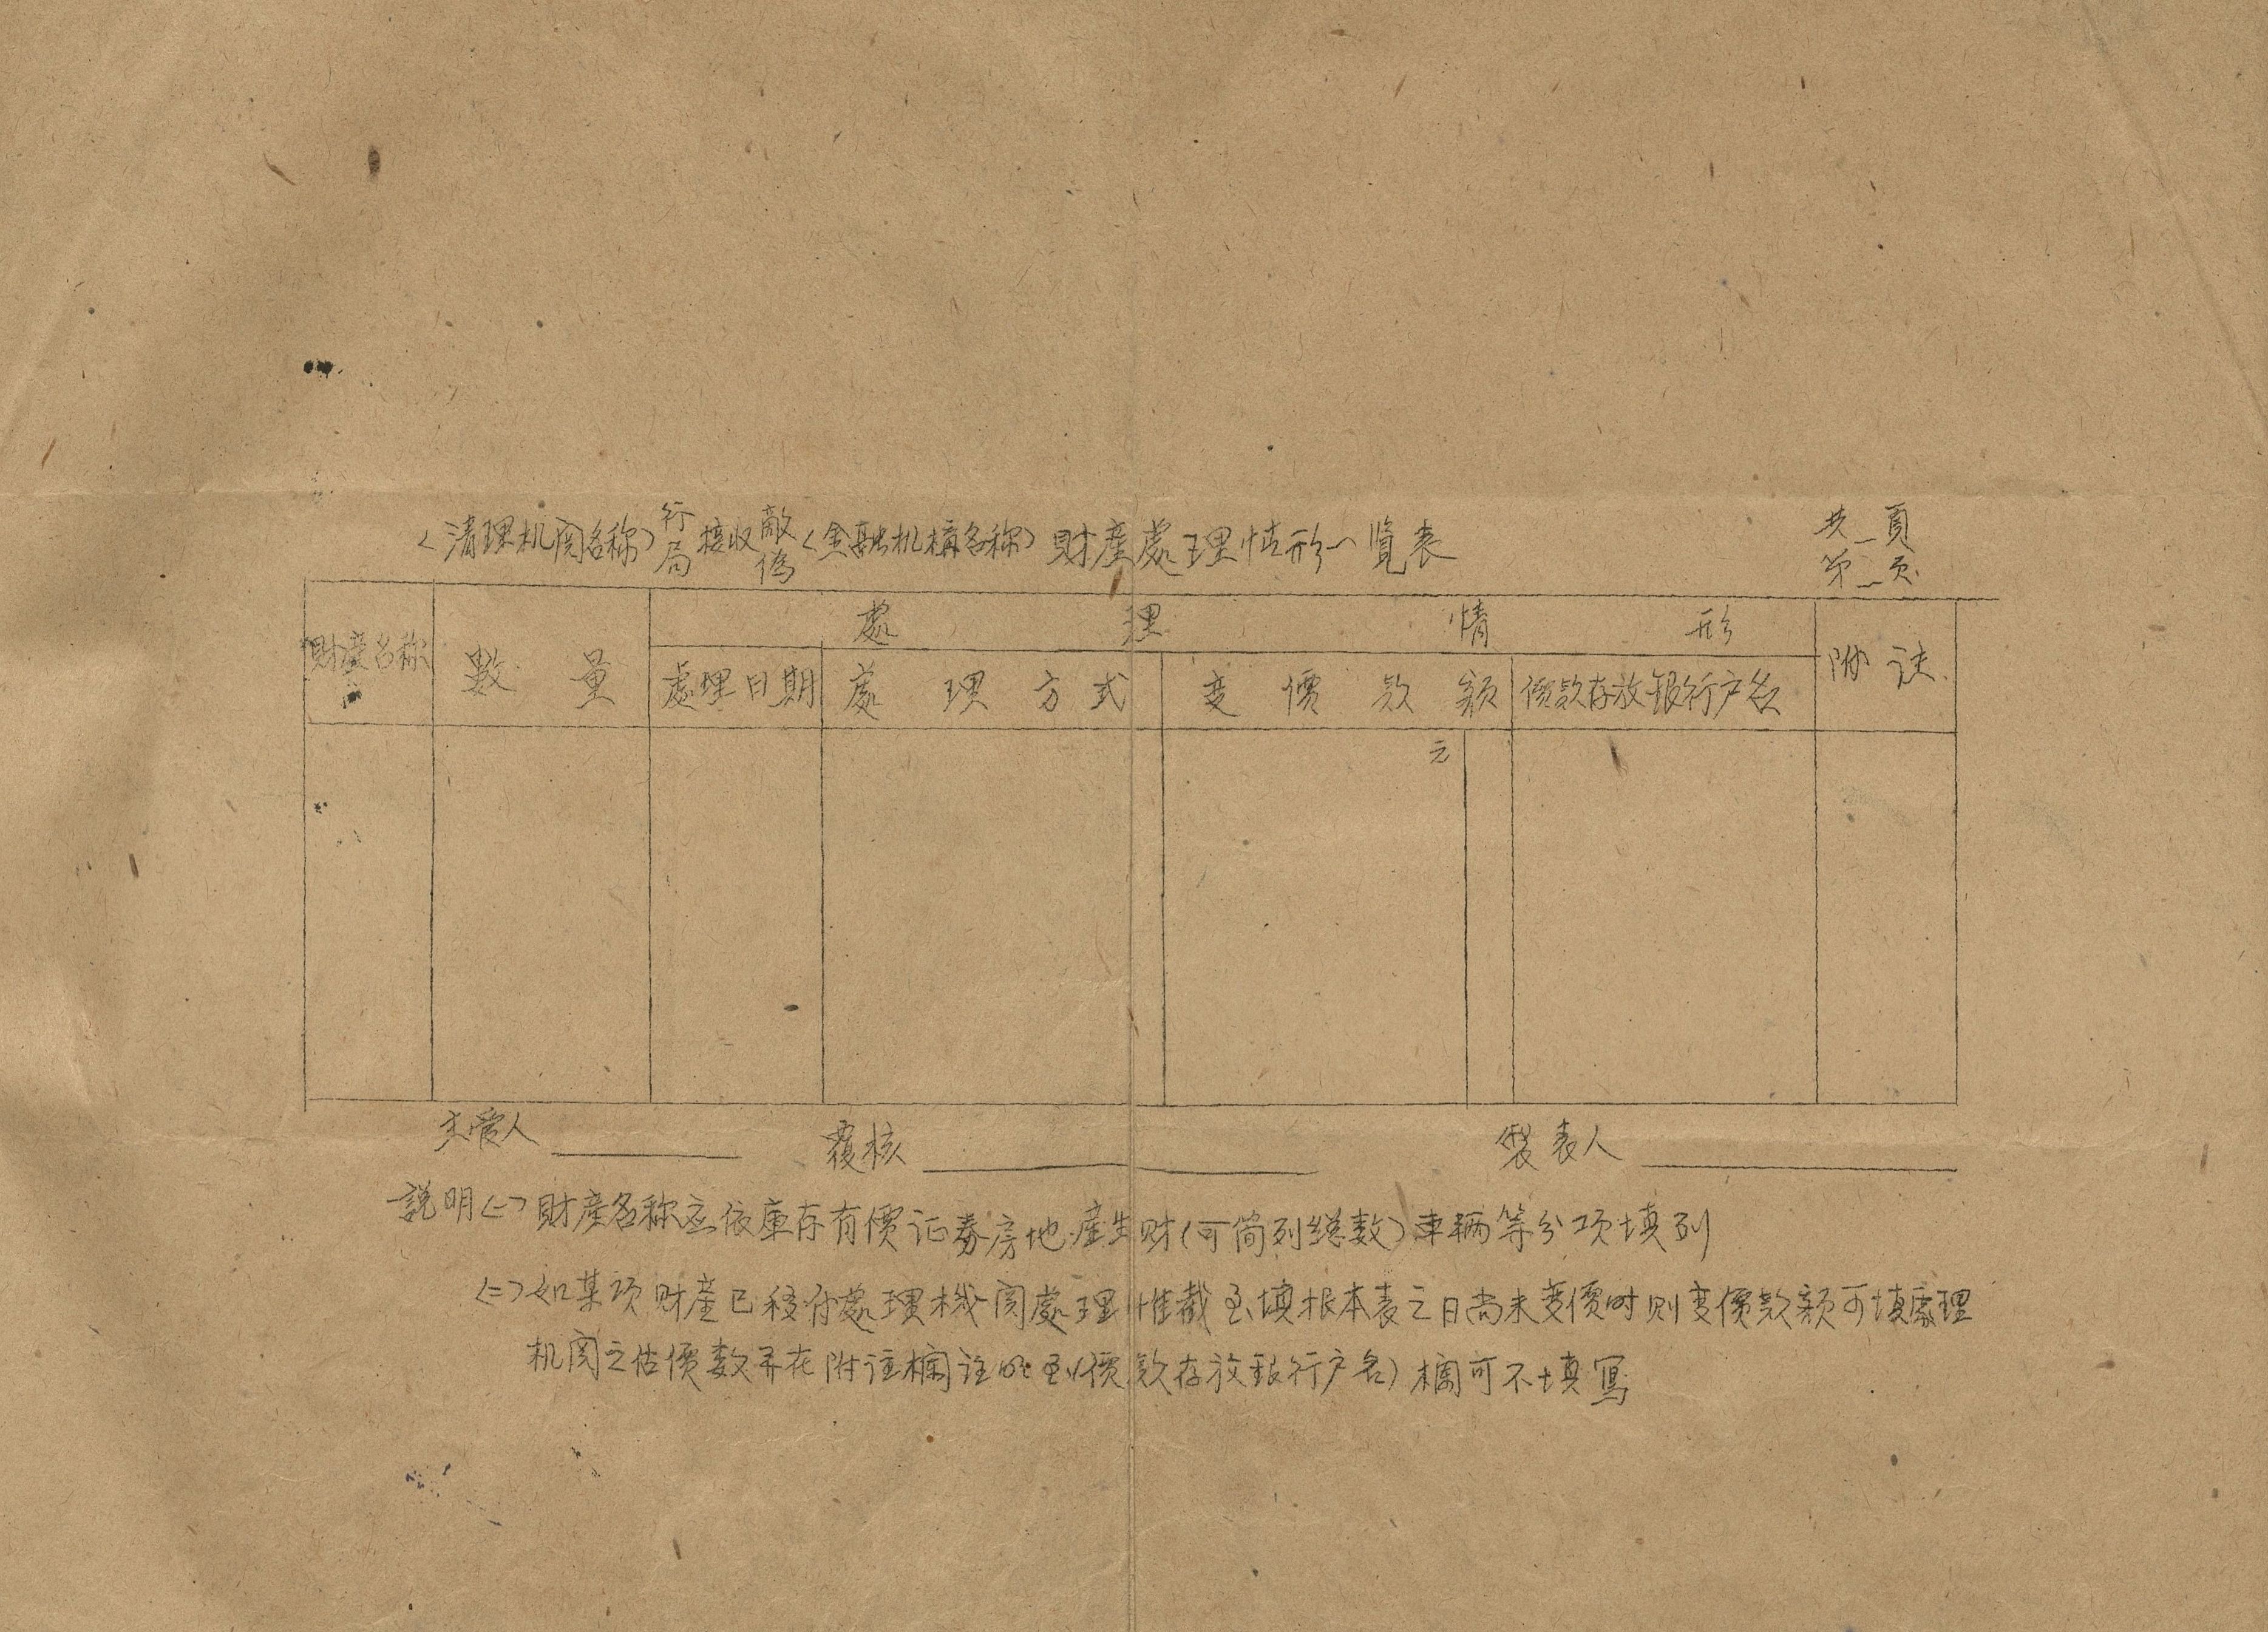 〈清理机関名称〉行局接收敵偽〈金融机構名称〉財產處理情形一覧表
共_頁
第_页
財產名称
數量
處理情形
處理日期
處理方式
变價款額
價款存放银行户名
附註
元
主管人
覆核
製表人
説明〈一〉財產名称应依庫存有價证券房地產生財(可简列総数)車輛等分项填列
〈二〉如某项财產已移付處理機関處理惟截至填报本表之日尚未变價时则变價款額可填處理
机関之估價数并在附註欄註明至(價款存放银行户名)欄可不填寫